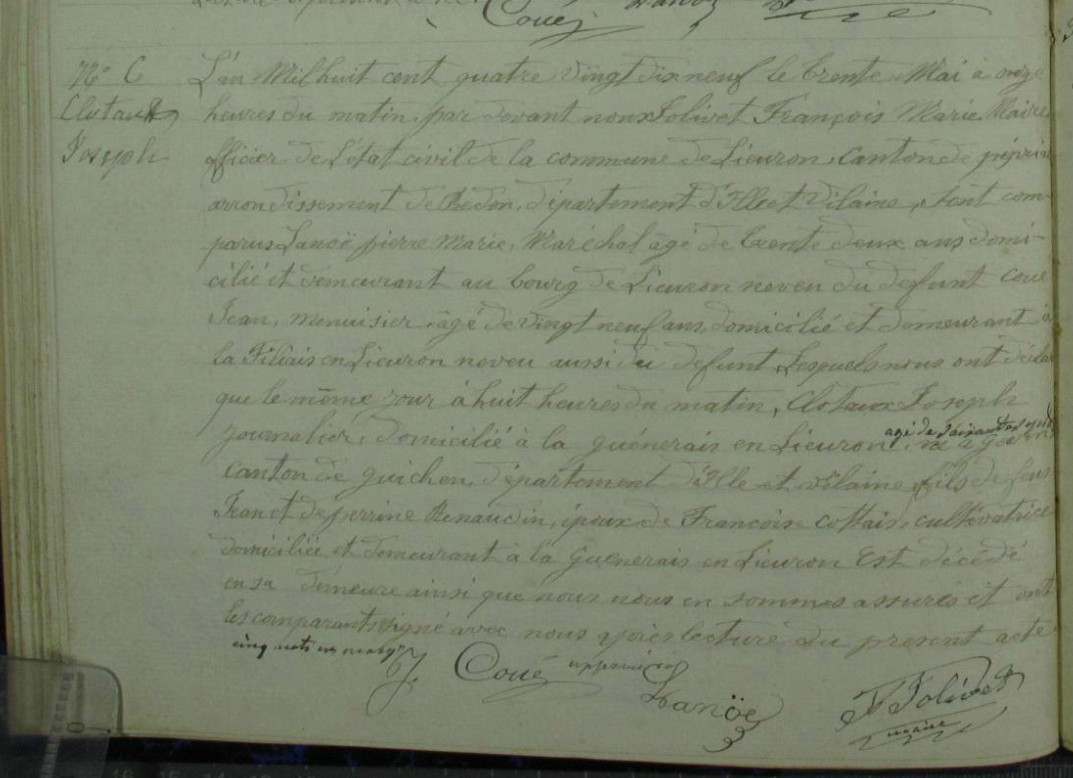 Coué Lanoë
N° 6
Clotaux
Joseph
L'an Mil huit cent quatre vingt dix neuf le trente Mai à onze
heures du matin, par devant nous Jolivet François Marie Maire
officier de l'état civil de la commune de Lieuron, Canton de pipriac
arrondissement de Redon, département d'Ille et Vilaine, sont com
parus Lanoë pierre Marie, Maréchal âgé de trente deux ans domi-
cilié et demeurant au bourg de Lieuron neveu du defunt Coué
Jean, menuisier, âgé de vingt neuf ans, domicilié et demeurant à
la en Lieuron neveu aussi du defunt, Lesquels nous ont décla
que le même jour à huit heures du matin, Clotaux Joseph
journalier, domicilié à la guénerais en Lieuron agé de soixante né à
Canton de guichen, département d'Ille et Vilaine, fils de feus
Jean et de perrine Renaudin, époux de Francoise Cottais, cultivatrice
domiciliée et demeurant à la guenerais en Lieuron Est décédé
en sa demeure ainsi que nous nous en sommes assurés et ont
les comparants signé avec nous après lecture du present acte
cinq mots en marge
J. Coué approuvés Lanoë F Jolivet
maire